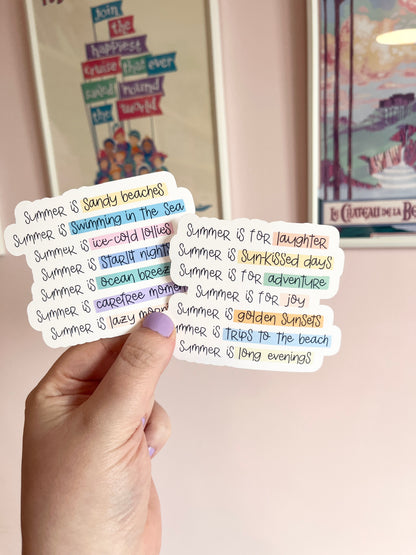 Join
the
happiest
cruise that ever
sailed 'round
the world
LE CHATEAU DE LA BE
Summer is sandy beaches
Summer is Swimming in the Sea
Summer is ice-cold lollies
Summer is starlit nights
Summer is ocean breez
Summer is carefree momen
Summer is lazy mo
Summer is for laughter
Summer is Sun-kissed days
Summer is for adventure
Summer is for joy
Summer is golden sunsets
ummer is trips to the beach
Summer is long evenings